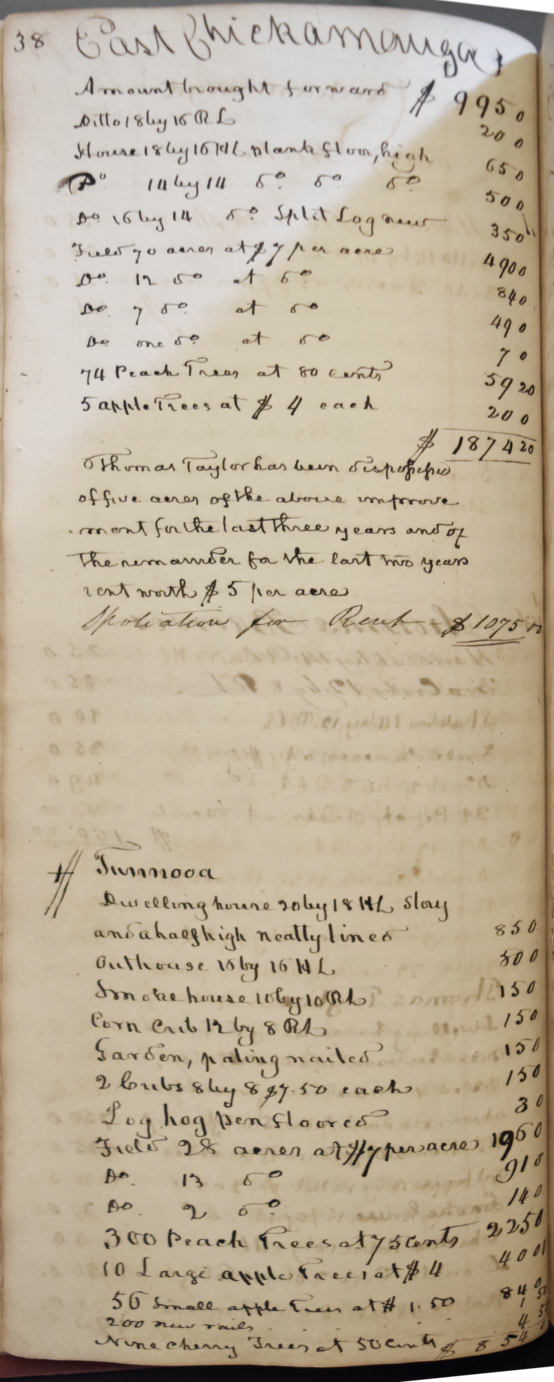 38 East Chickamauga,
Amount brought forward $ 995 0
Ditto 18 by 16 RL 20 0
House 18 by 16 HL plank floor, high 65 0
Do 14 by 14 do do do 50 0
Do 16 by 14 do Split Log new 35 0
Field 70 acres at $7 per acre 490 0
Do. 12 do at do 84 0
Do. 7 do at do 49 0
Do one do at do 7 0
74 Peach Trees at 80 cents 59 20
5 apple Trees at $ 4 each 20 0
$ 1874 20
Thomas Taylor has been dispossessed
of five acres of the above improve
ment for the last three years and of
the remainder for the last two years
rent worth $ 5 per acre
Spoliation for Rent $ 1075 00
Tunnooa
Dwelling house 20 by 18 HL story
and a half high neatly lined 85 0
Outhouse 16 by 16 HL 50 0
Smoke house 10 by 10 RL 15 0
Corn Crib 12 by 8 RL 15 0
Garden, paling nailed 15 0
2 Cribs 8 by 8 $7.50 each 15 0
Log hog pen floored 3 0
Field 28 acres at $7 per acre 196 0
Do. 13 do 91 0
Do. 2 do 14 0
300 Peach Trees at 75 cents 225 0
10 Large apple Trees at $ 4 40 0
56 Small apple Trees at $ 1.50 84 0
200 new rails 1 50
Nine cherry Trees at 50 cents 4 50